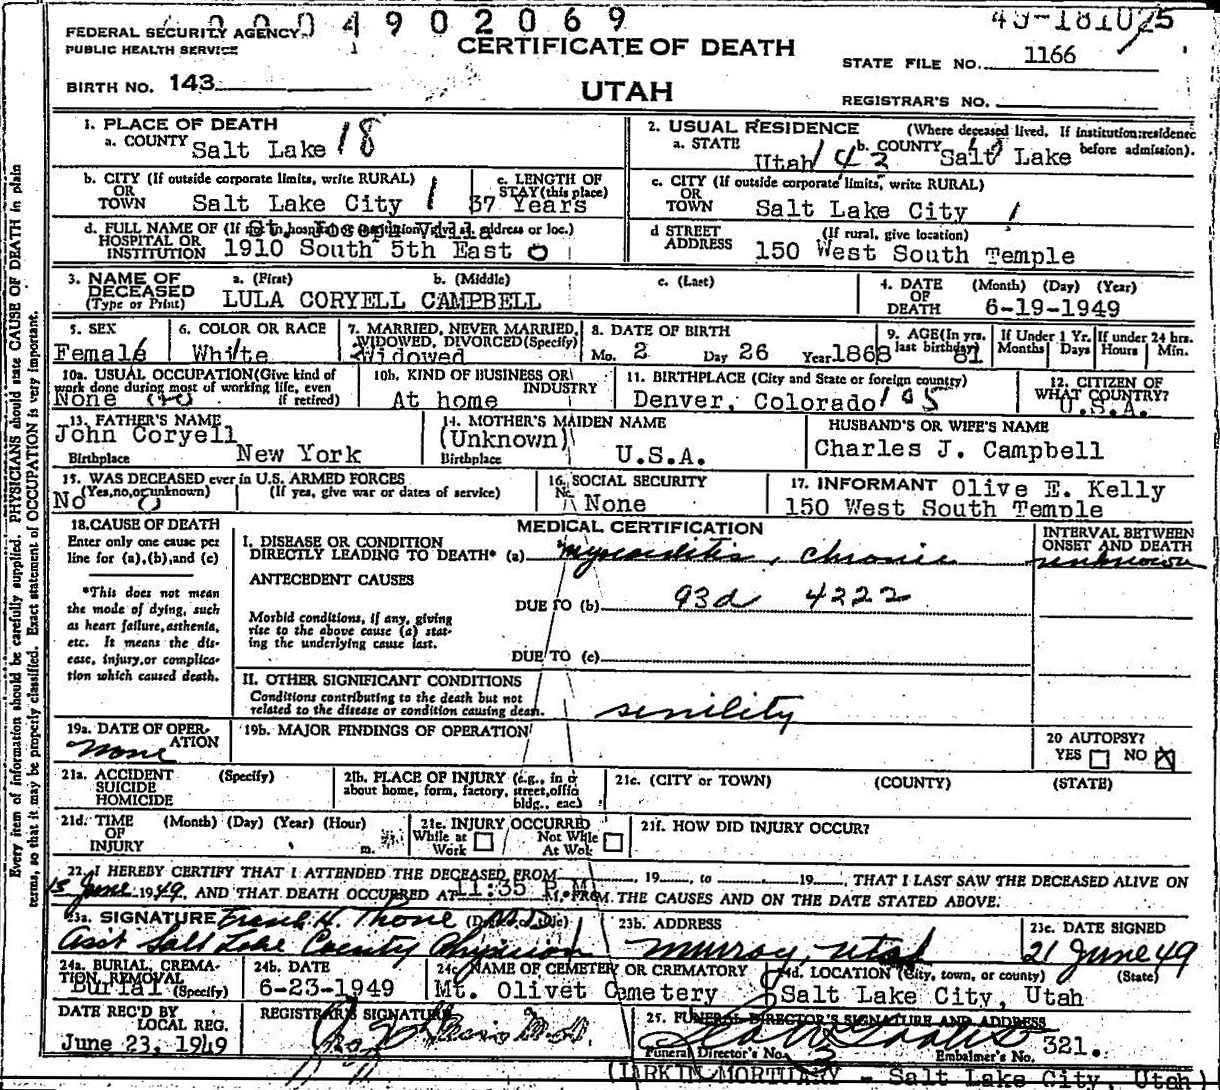 0 0 0 4 9 0 2 0 6 9
FEDERAL SECURITY AGENCY
PUBLIC HEALTH SERVICE
CERTIFICATE OF DEATH
STATE FILE NO. 1166
BIRTH NO. 143
UTAH
REGISTRAR'S NO.
1. PLACE OF DEATH
a. COUNTY Salt Lake 18
2. USUAL RESIDENCE (Where deceased lived. If institution: residence before admission).
a. STATE Utah b. COUNTY Salt Lake
b. CITY (If outside corporate limits, write RURAL) OR TOWN Salt Lake City 1
c. LENGTH OF STAY (this place) 37 Years
c. CITY (If outside corporate limits, write RURAL) OR TOWN Salt Lake City 1
d. FULL NAME OF (If not in hospital or institution, give st. address or loc.) HOSPITAL OR INSTITUTION St. Joseph Villa
1910 South 5th East 0
d STREET ADDRESS (If rural, give location) 150 West South Temple
3. NAME OF DECEASED (Type or Print) a. (First) b. (Middle) c. (Last)
LULA CORYELL CAMPBELL
4. DATE OF DEATH (Month) (Day) (Year)
6-19-1949
5. SEX Female
6. COLOR OR RACE White
7. MARRIED, NEVER MARRIED, WIDOWED, DIVORCED (Specify) 2 Widowed
8. DATE OF BIRTH
Mo. 2 Day 26 Year 1868
9. AGE (In yrs. last birthday) 81
If Under 1 Yr. Months Days
If under 24 hrs. Hours Min.
10a. USUAL OCCUPATION (Give kind of work done during most of working life, even if retired) None
10b. KIND OF BUSINESS OR INDUSTRY At home
11. BIRTHPLACE (City and State or foreign country) Denver, Colorado 105
12. CITIZEN OF WHAT COUNTRY? U.S.A.
13. FATHER'S NAME John Coryell
Birthplace New York
14. MOTHER'S MAIDEN NAME (Unknown)
Birthplace U.S.A.
HUSBAND'S OR WIFE'S NAME
Charles J. Campbell
15. WAS DECEASED ever in U.S. ARMED FORCES
(Yes, no, or unknown) (If yes, give war or dates of service)
No 0
16. SOCIAL SECURITY No. None
17. INFORMANT Olive E. Kelly
150 West South Temple
18. CAUSE OF DEATH
Enter only one cause per line for (a), (b), and (c)
*This does not mean the mode of dying, such as heart failure, asthenia, etc. It means the disease, injury, or complication which caused death.
MEDICAL CERTIFICATION
INTERVAL BETWEEN ONSET AND DEATH
I. DISEASE OR CONDITION DIRECTLY LEADING TO DEATH* (a) myocarditis, chronic unknown
ANTECEDENT CAUSES
DUE TO (b) 93d 4222
Morbid conditions, if any, giving rise to the above cause (a) stating the underlying cause last.
DUE TO (c)
II. OTHER SIGNIFICANT CONDITIONS
Conditions contributing to the death but not related to the disease or condition causing death. senility
19a. DATE OF OPERATION none
19b. MAJOR FINDINGS OF OPERATION
20 AUTOPSY?
YES NO X
21a. ACCIDENT SUICIDE HOMICIDE (Specify)
21b. PLACE OF INJURY (e.g., in or about home, form, factory, street, office bldg., eac)
21c. (CITY or TOWN) (COUNTY) (STATE)
21d. TIME OF INJURY (Month) (Day) (Year) (Hour) m.
21e. INJURY OCCURRED
While at Work Not While At Wok
21f. HOW DID INJURY OCCUR?
22. I HEREBY CERTIFY THAT I ATTENDED THE DECEASED FROM 19, to 19, THAT I LAST SAW THE DECEASED ALIVE ON
15 June 1949, AND THAT DEATH OCCURRED AT 11:35 P.M. M., FROM THE CAUSES AND ON THE DATE STATED ABOVE.
23a. SIGNATURE Frank H. Thone M.D.
Asst Salt Lake County Physician
23b. ADDRESS
Murray, Utah
23c. DATE SIGNED
21 June 49
24a. BURIAL, CREMATION, REMOVAL (Specify) Burial
24b. DATE
6-23-1949
24c NAME OF CEMETERY OR CREMATORY
Mt. Olivet Cemetery
24d. LOCATION (City, town, or county) (State)
Salt Lake City, Utah
DATE REC'D BY LOCAL REG.
June 23, 1949
REGISTRAR'S SIGNATURE
25. FUNERAL DIRECTOR'S SIGNATURE AND ADDRESS
Funeral Director's No. 3 Embalmer's No. 321.
(LARKIN MORTUARY - Salt Lake City, Utah)
Every item of information should be carefully supplied. PHYSICIANS should state CAUSE OF DEATH in plain
terms, so that it may be properly classified. Exact statement of OCCUPATION is very important.